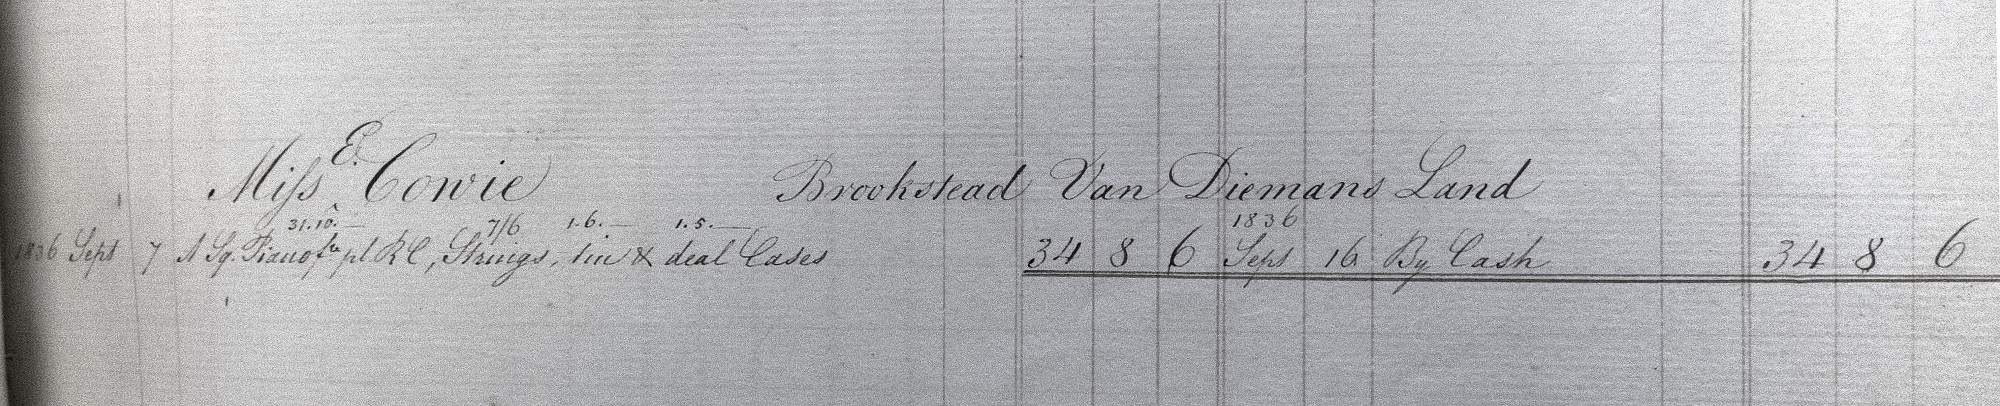 Miss E. Cowie Brookstead Van Diemans Land
31.10. — 7/6 1.6. — 1.5. — 1836
1836 Sept 7 A Sq. Pianofte pl R C, Strings, tin & deal Cases 34 8 6 Sept 16 By Cash 34 8 6